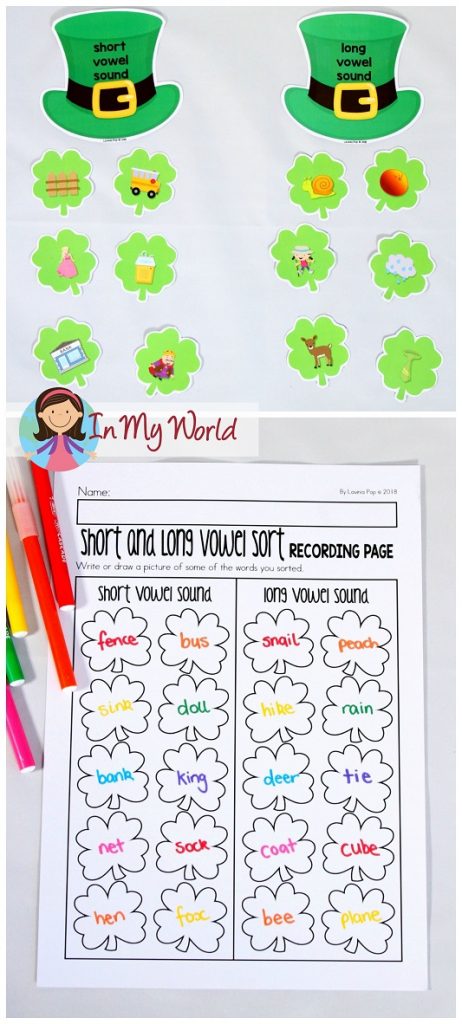 short
vowel
sound
long
vowel
sound
In My World
Name:
By Laveva Pop © 2018
Short and Long Vowel Sort RECORDING PAGE
Write or draw a picture of some of the words you sorted.
short vowel sound
long vowel sound
fence bus snail peach
sink doll hike rain
bank king deer tie
net sock coat cube
hen fox bee plane